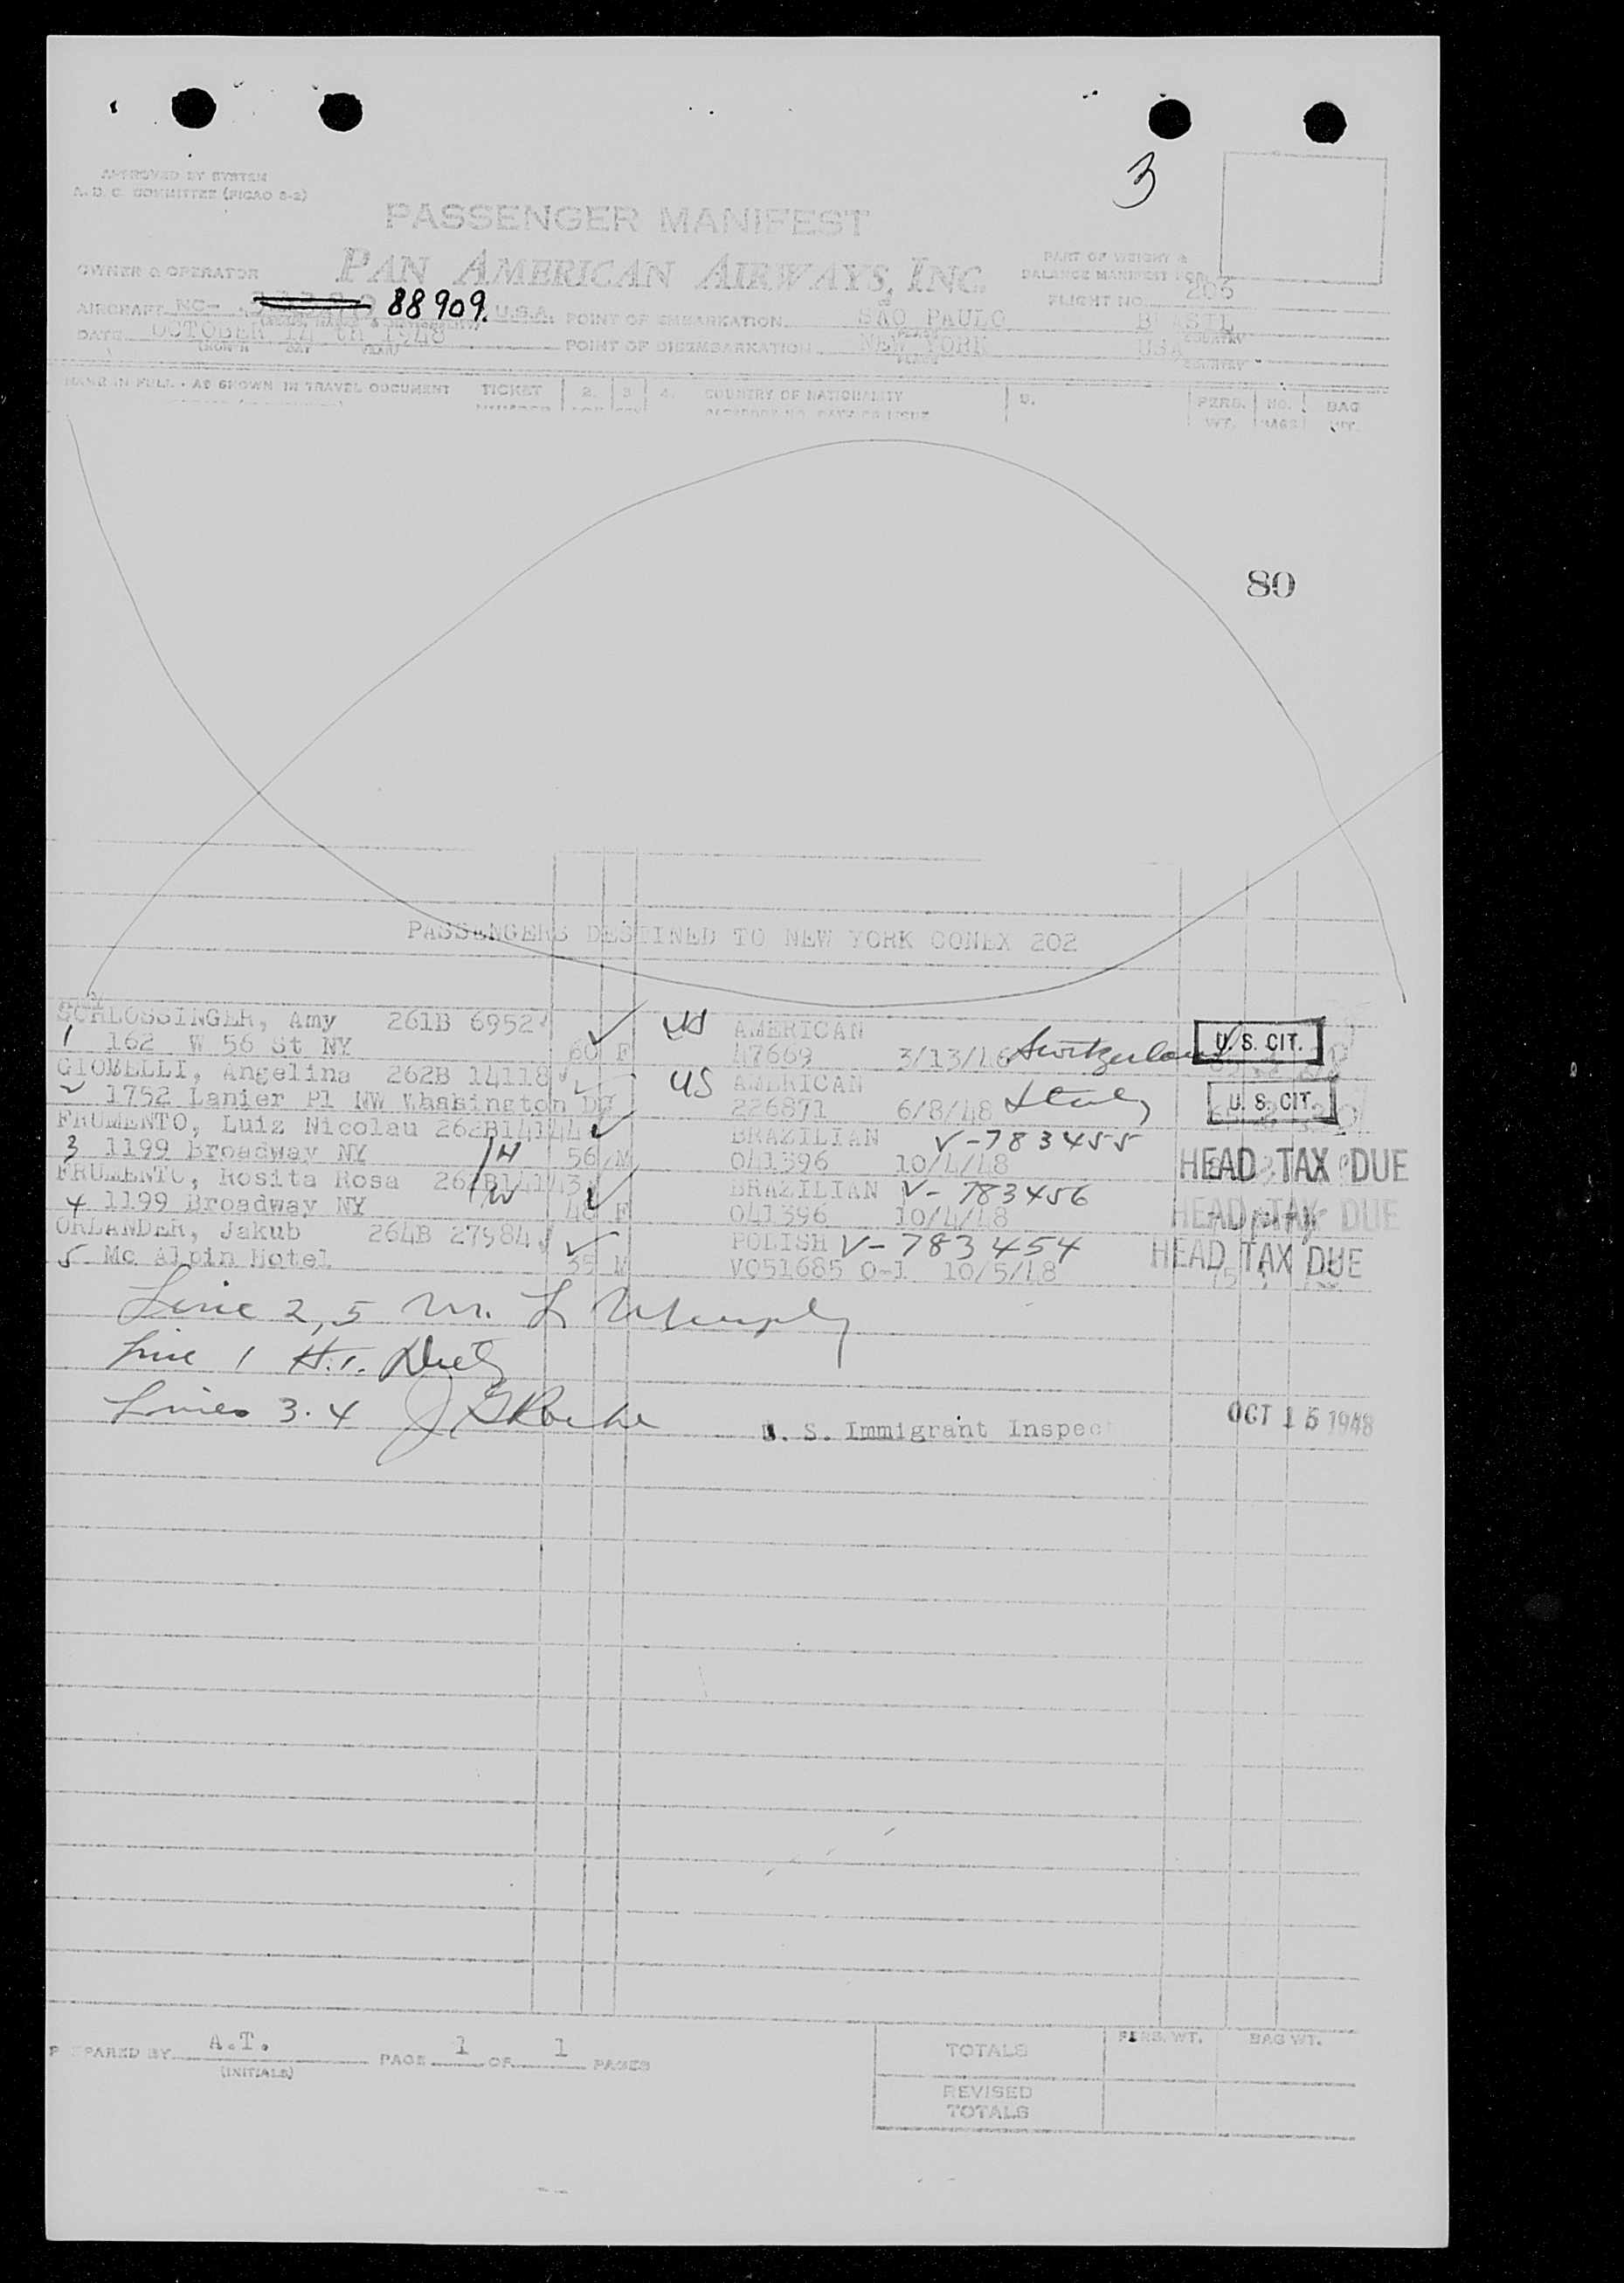 3
APPROVED BY SYSTEM
A. D. C. COMMITTEE (PICAO 8-2)
PASSENGER MANIFEST
OWNER & OPERATOR PAN AMERICAN AIRWAYS, INC.
PART OF WEIGHT &
BALANCE MANIFEST FOR
FLIGHT NO. 203
AIRCRAFT NC- 88909. U.S.A. POINT OF EMBARKATION SAO PAULO
DATE OCTOBER 14 th 1948 POINT OF DISEMBARKATION NEW YORK USA
(MONTH DAY YEAR) PLACE COUNTRY
NAME IN FULL - AS SHOWN IN TRAVEL DOCUMENT TICKET 2. 3 4. COUNTRY OF NATIONALITY 5. PERS. NO. BAG
PASSPORT NO. DATE OF ISSUE WT. BAGS WT.
80
PASSENGERS DESTINED TO NEW YORK CONEX 202
SCHLOSSINGER, Amy 261B 6952 US AMERICAN
1 162 W 56 St NY 60 F 47669 3/13/46 Switzerland U. S. CIT.
GIOMELLI, Angelina 262B 14118 US AMERICAN
2 1752 Lanier Pl NW Whasington DC 226871 6/8/48 Italy U. S. CIT.
FRUMENTO, Luiz Nicolau 262B14144 BRAZILIAN V-783455
3 1199 Broadway NY /H 56 M 041396 10/4/48 HEAD TAX DUE
FRUMENTO, Rosita Rosa 262B14143 BRAZILIAN V-783456
4 1199 Broadway NY /W 48 F 041396 10/4/48 HEAD TAX DUE
ORLANDER, Jakub 264B 27984 POLISH V-783454
5 Mc Alpin Hotel 35 M V051685 0-1 10/5/48 HEAD TAX DUE
Line 2,5 M. L Murphy
Line 1 H.
Lines 3.4 J Roche
U. S. Immigrant Inspec OCT 15 1948
PREPARED BY A.T. PAGE 1 OF 1 PAGES
(INITIALS)
TOTALS PERS. WT. BAG WT.
REVISED
TOTALS